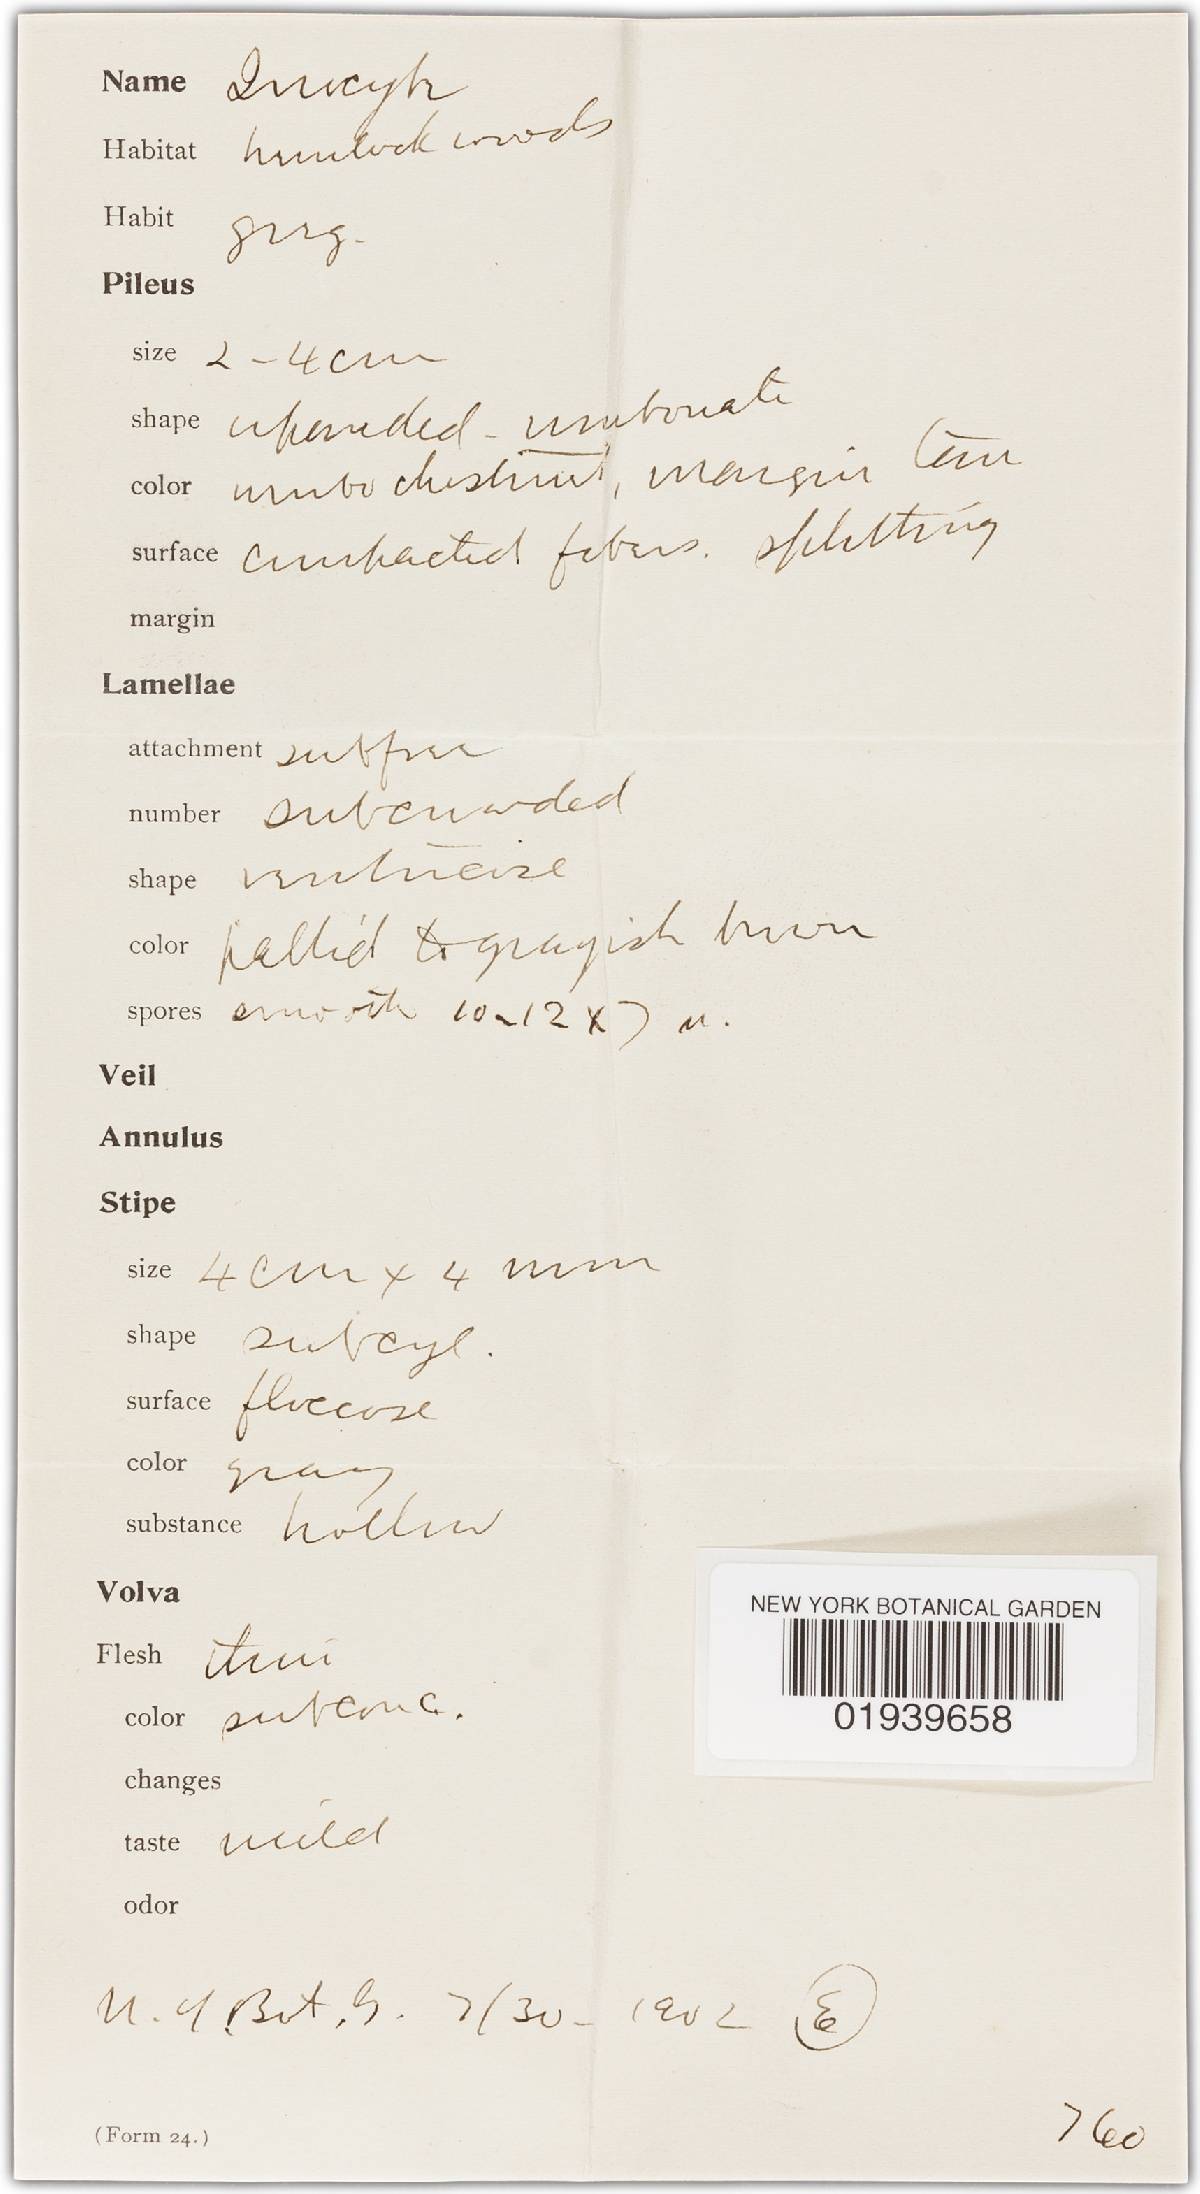 Name Inocybe
Habitat hemlock woods
Habit greg.
Pileus
size 2-4 cm
shape expanded - umbonate
color umbo chestnut, margin tan
surface compacted fibers. splitting
margin
Lamellae
attachment subfree
number subcrowded
shape ventricose
color pallid to grayish brown
spores smooth 10-12 x 7 u.
Veil
Annulus
Stipe
size 4 cm x 4 mm
shape subcyl.
surface floccose
color gray
substance hollow
Volva
NEW YORK BOTANICAL GARDEN
01939658
Flesh thin
color subconc.
changes
taste mild
odor
N. Y. Bot. G. 7/30-1902 E
(Form 24.)
760